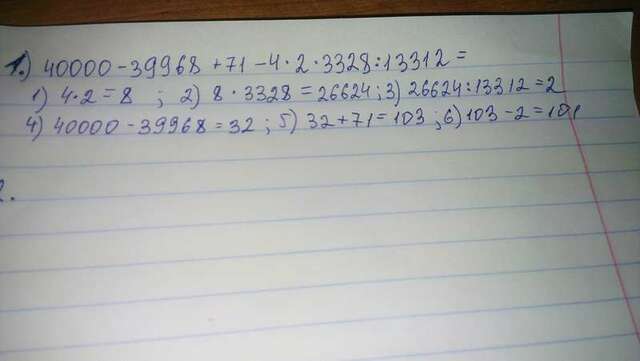 1.) 40000-39968+71-4·2·3328:13312=
1) 4·2=8 ; 2) 8·3328=26624; 3) 26624:13312=2
4) 40000-39968=32 ; 5) 32+71=103 ; 6) 103-2=101
2.